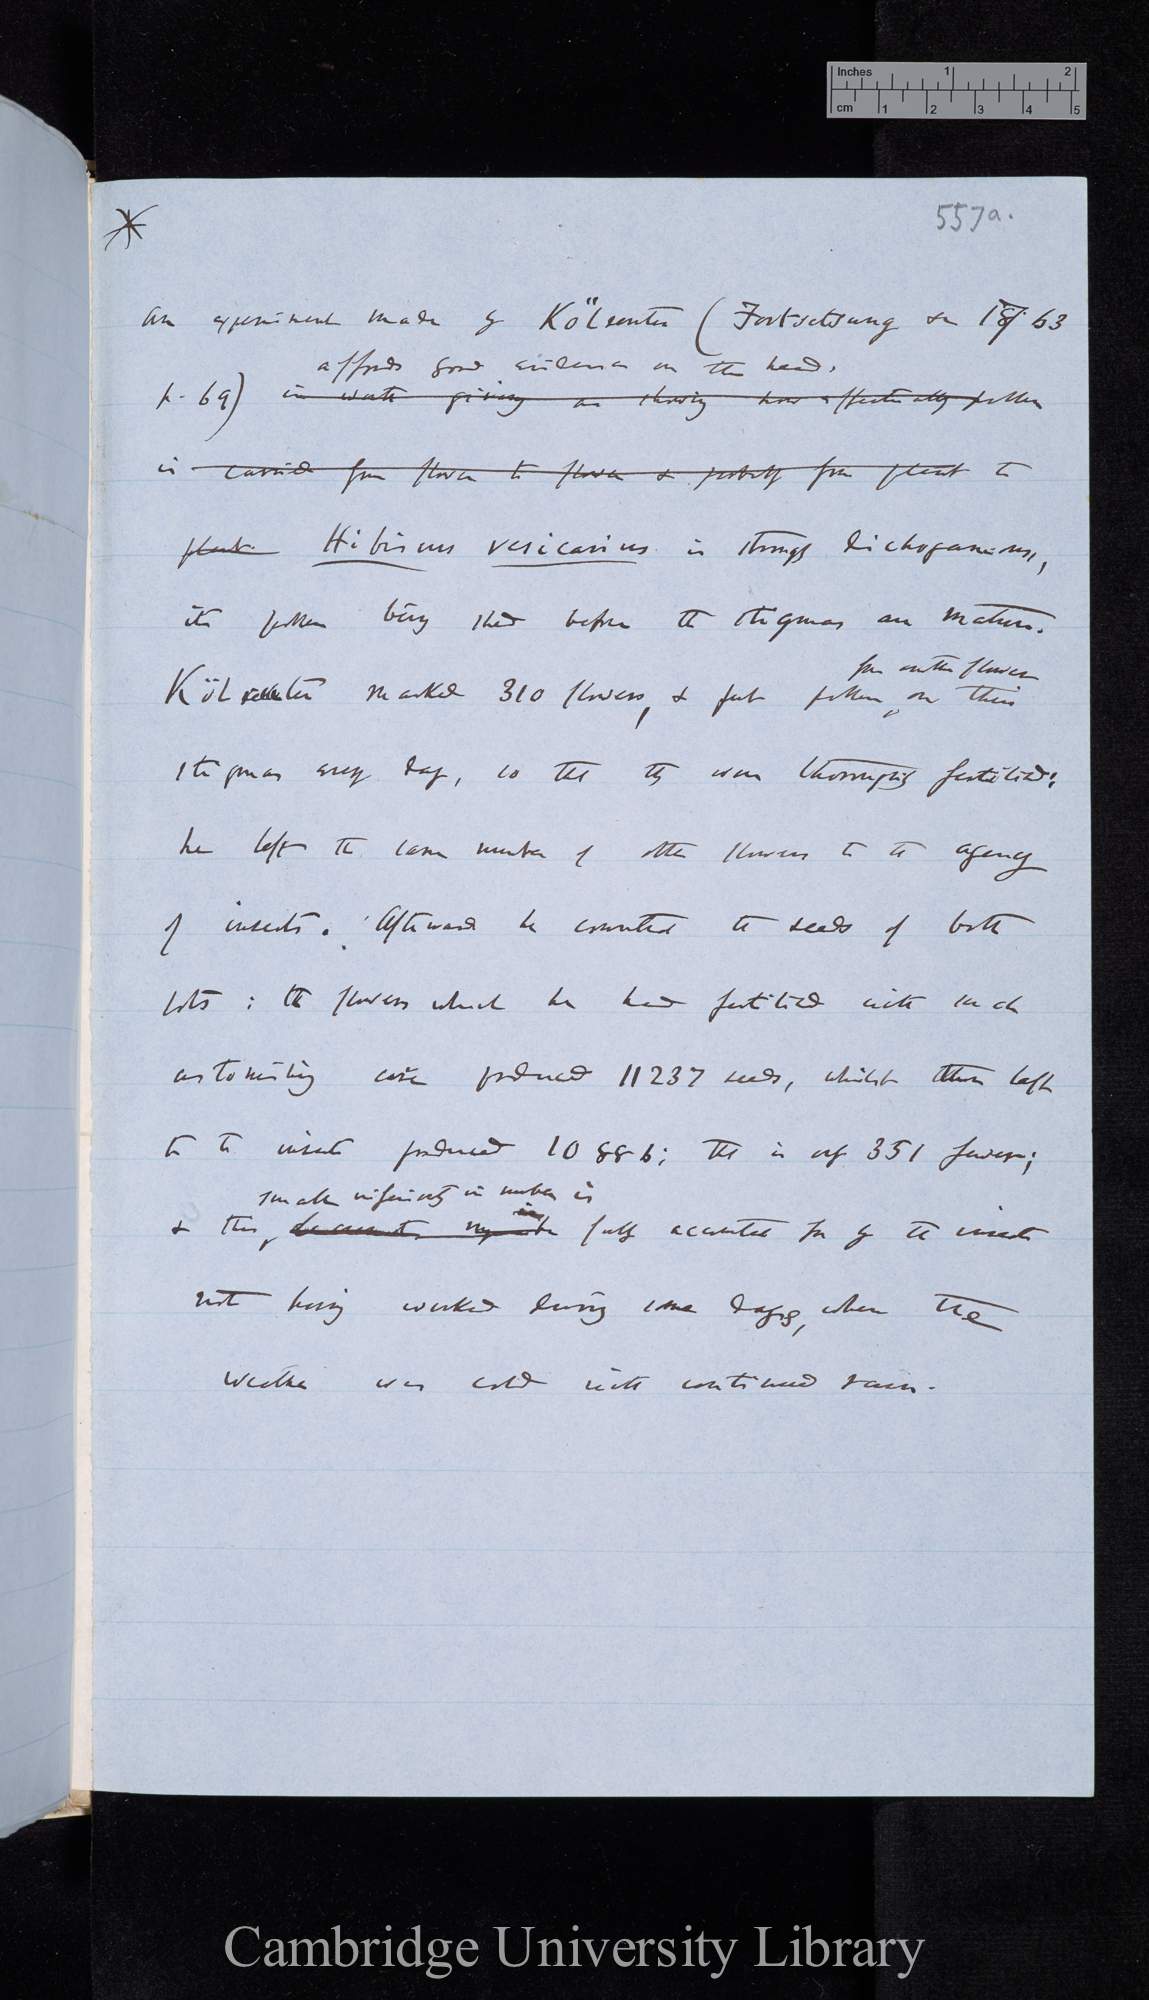 Inches 1 2
cm 1 2 3 4 5
557a.
An experiment made by Kölreuter (Fortsetsung &c 1763
affords good evidence on this head.
p. 69) is worth giving as showing how effectually pollen
is carried from flower to flower & probably from plant to
plant. Hibiscus vesicarius is strongly dichogamous,
its pollen being shed before the stigmas are mature.
from another flower
Kölreuter marked 310 flowers, & put pollen on their
stigmas every day, so that they were thoroughly fertilised;
he left the same number of other flowers to the agency
of insects. Afterwards he counted the seeds of both
lots: the flowers which he had fertilised with such
astonishing care produced 11237 seeds, whilst those left
to the insects produced 10886; that is only 351 fewer;
small inferiority in number is
& this fully accounted for by the insects
not having worked during some days, when the
weather was cold with continued rain.
Cambridge University Library